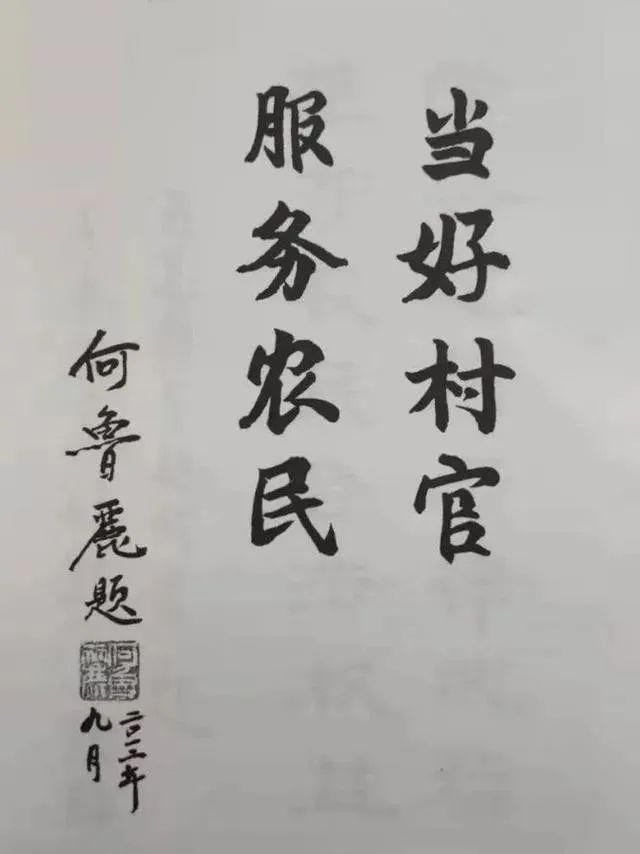 当好村官
服务农民
何魯麗题
二〇一二年
九月